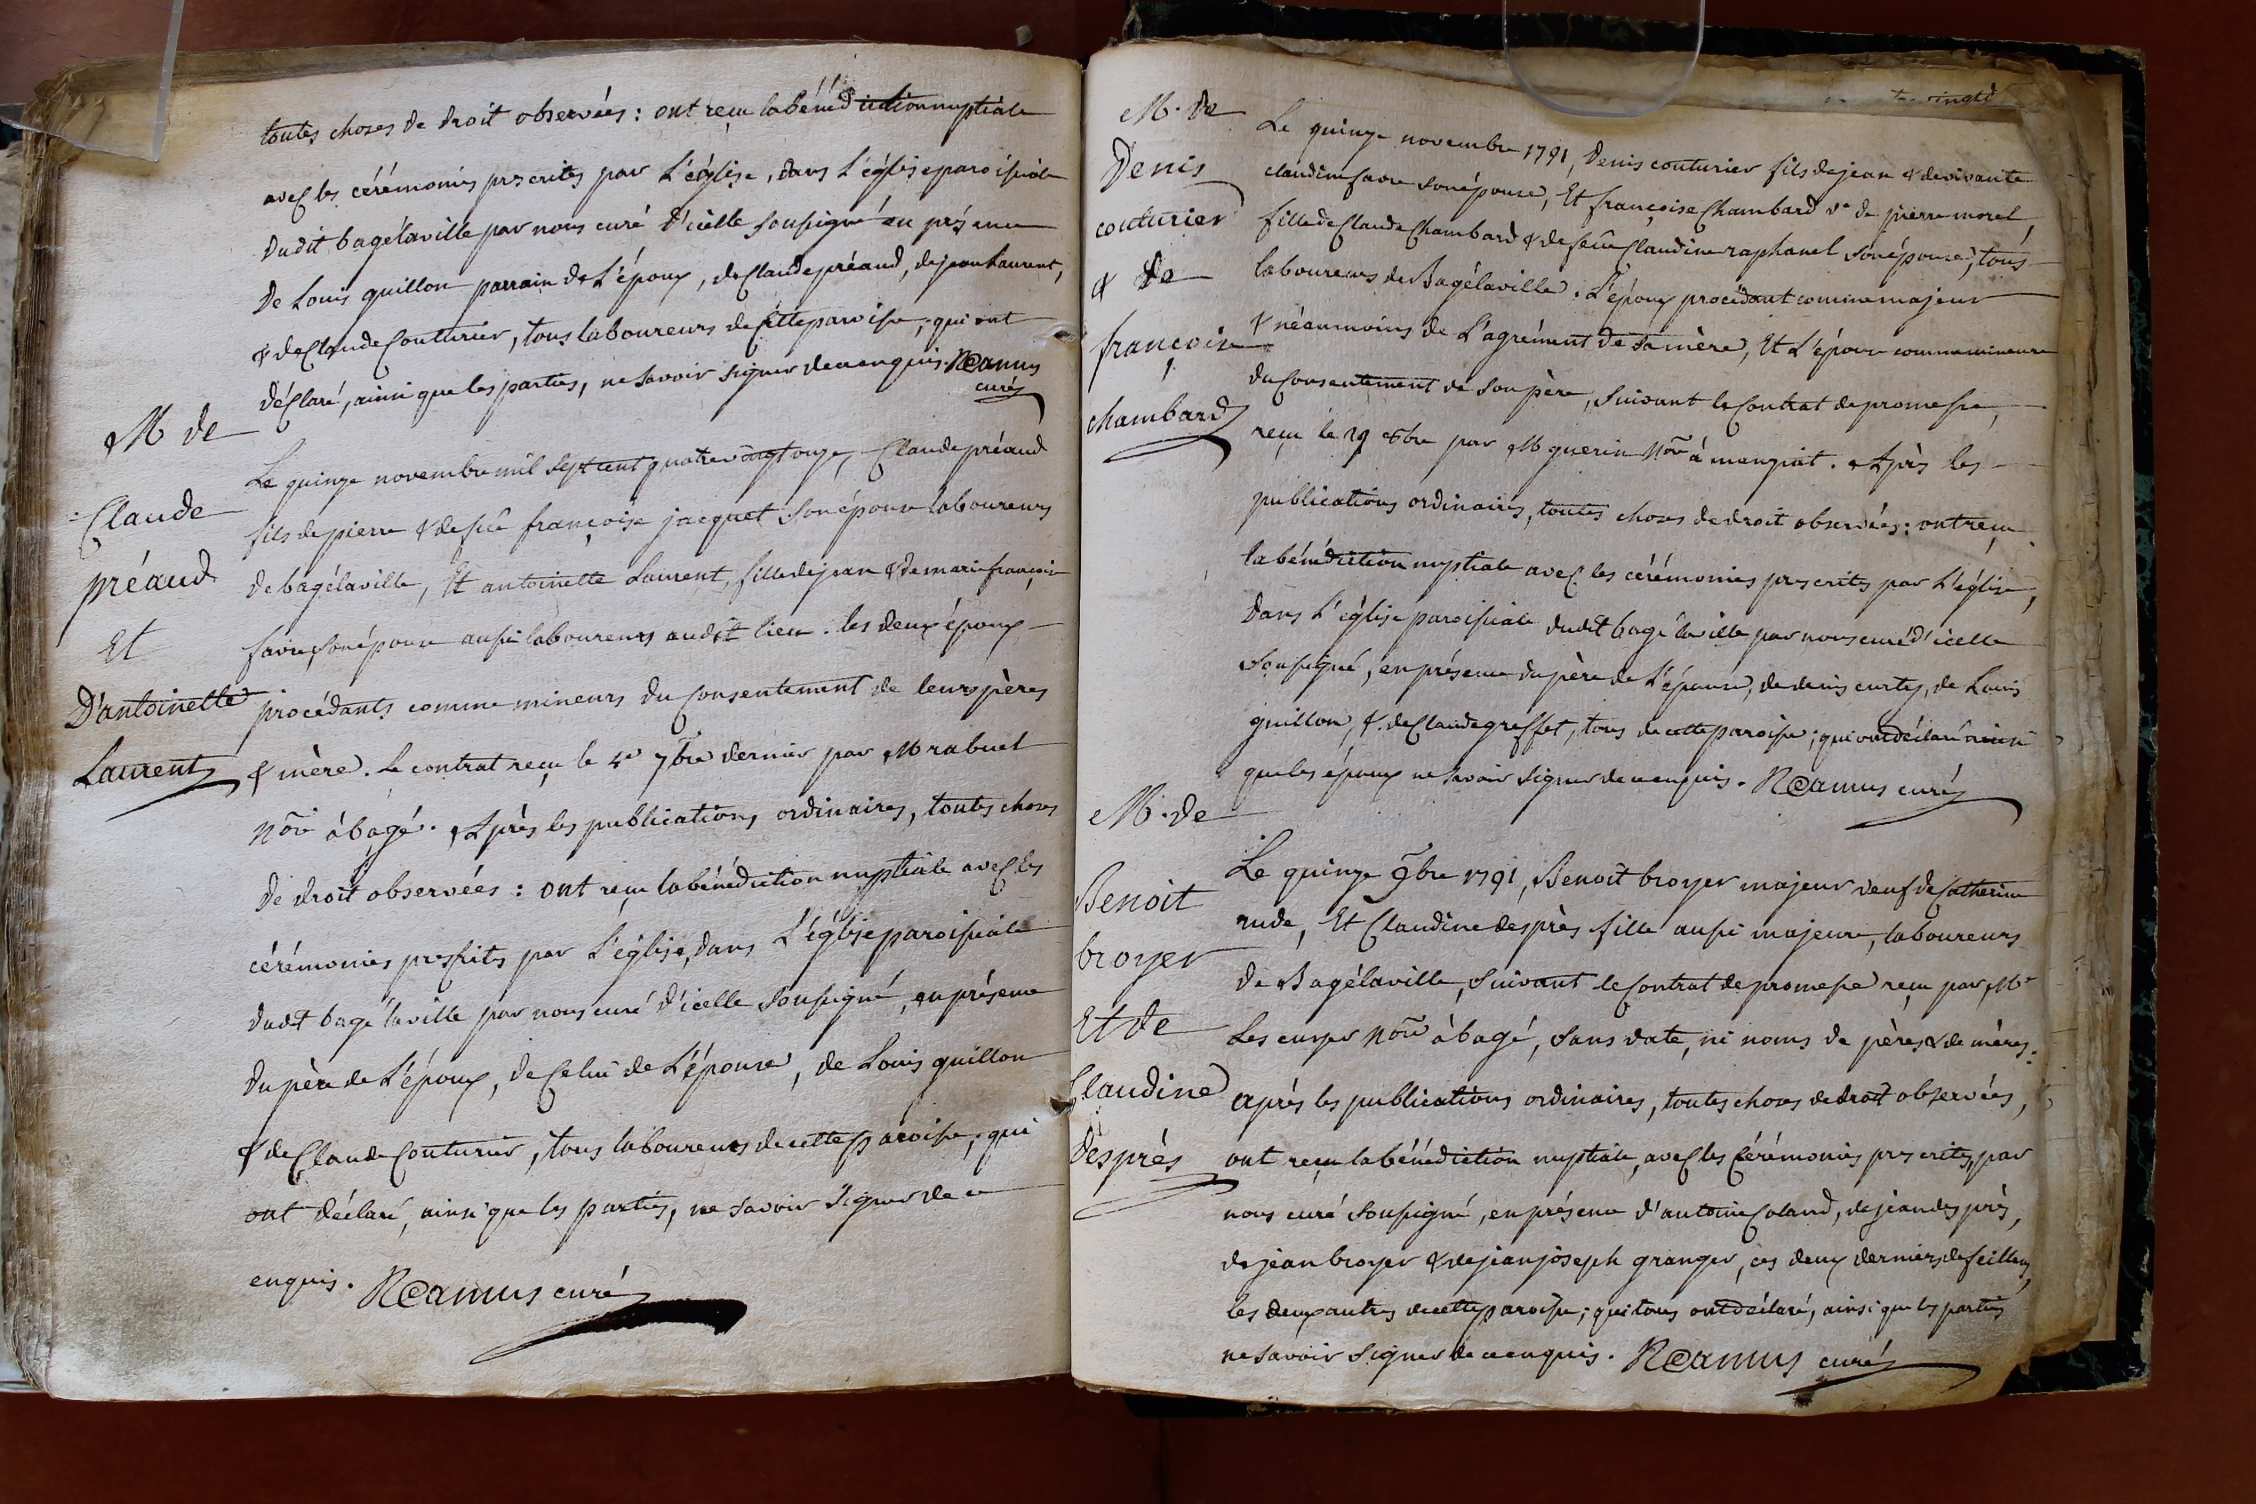 toutes choses de droit observées : ont reçu la bénédiction nuptiale
avec les cérémonies prescrites par L'église, dans L'église paroissiale
dudit bagélaville par nous curé d'icelle soussigné en présence
de Louis guillon parrain de L'époux, de Claude préaud, de jean Laurent,
& de Claude Couturier, tous laboureurs de Cette paroisse; qui ont
déclaré, ainsi que les parties, ne savoir signer de ce enquis. Camus
curé
M de
Claude
préaud
Et
D'antoinette
Laurent
Le quinze novembre mil sept cent quatre vingt onze, Claude préaud
fils de pierre & de feüe françoise jacquet son épouse laboureurs
de bagélaville, Et antoinette Laurent, fille de jean & de marie françoise
favre, son épouse aussi laboureurs audit lieu. les deux époux
procédants comme mineurs du Consentement de leurs pères
& mère. Le contrat reçu le 4e 7bre dernier par M rabuel
Nore à bagé. Après les publications ordinaires, toutes choses
de droit observées : ont reçu la bénédiction nuptiale avec les
cérémonies prescrites par L'église, dans L'église paroissiale
dudit bagé laville par nous curé d'icelle soussigné, en présence
du père de L'époux, de Celui de L'épouse, de Louis guillon
& de Claude Couturier, tous laboureurs de cette paroisse, qui
ont déclaré, ainsi que les parties, ne savoir signer de ce
enquis. Camus curé
vingt
M. de
Denis
couturier
& de
françoise
chambard
Le quinze novembre 1791, Denis couturier fils de jean & de vivante
claudine favre son épouse, Et françoise Chambard ve de pierre morel,
fille de Claude Chambard & de feüe Claudine raphanel son épouse, tous
laboureurs de Bagélaville. L'époux procédant comme majeur
& néanmoins de L'agrément de sa mère, Et L'épouse comme mineure
du Consentement de son père, suivant le Contrat de promesse,
reçu le 29 8bre par M guerin Nore à manziat. Après les
publications ordinaires, toutes choses de droit observées; ont reçu
la bénédiction nuptiale avec les cérémonies prescrites par L'église,
dans L'église paroissiale dudit bagé laville par nous curé d'icelle
soussigné, en présence du père de L'épouse, de denis curty, de Louis
guillon, & de Claude greffet, tous de cette paroisse; qui ont déclaré ainsi
que les époux ne savoir signer de ce enquis. Camus curé
M. de
Benoit
broyer
Et de
Claudine
desprès
Le quinze 9bre 1791, Benoit broyer majeur veuf de Catherine
rude, Et Claudine desprès fille aussi majeure, laboureurs
de Bagélaville, suivant le Contrat de promesse reçu par Me
Lescuyer Nore à bagé, sans date, ni noms de pères & de mères.
après les publications ordinaires, toutes choses de droit observées,
ont reçu la bénédiction nuptiale, avec les Cérémonies prescrites, par
nous curé soussigné, en présence d'antoine Coland, de jean desprès,
de jean broyer & de jean joseph granger, ces deux derniers de feillens,
les deux autres de cette paroisse; qui tous ont déclaré, ainsi que les parties
ne savoir signer de ce enquis. Camus curé